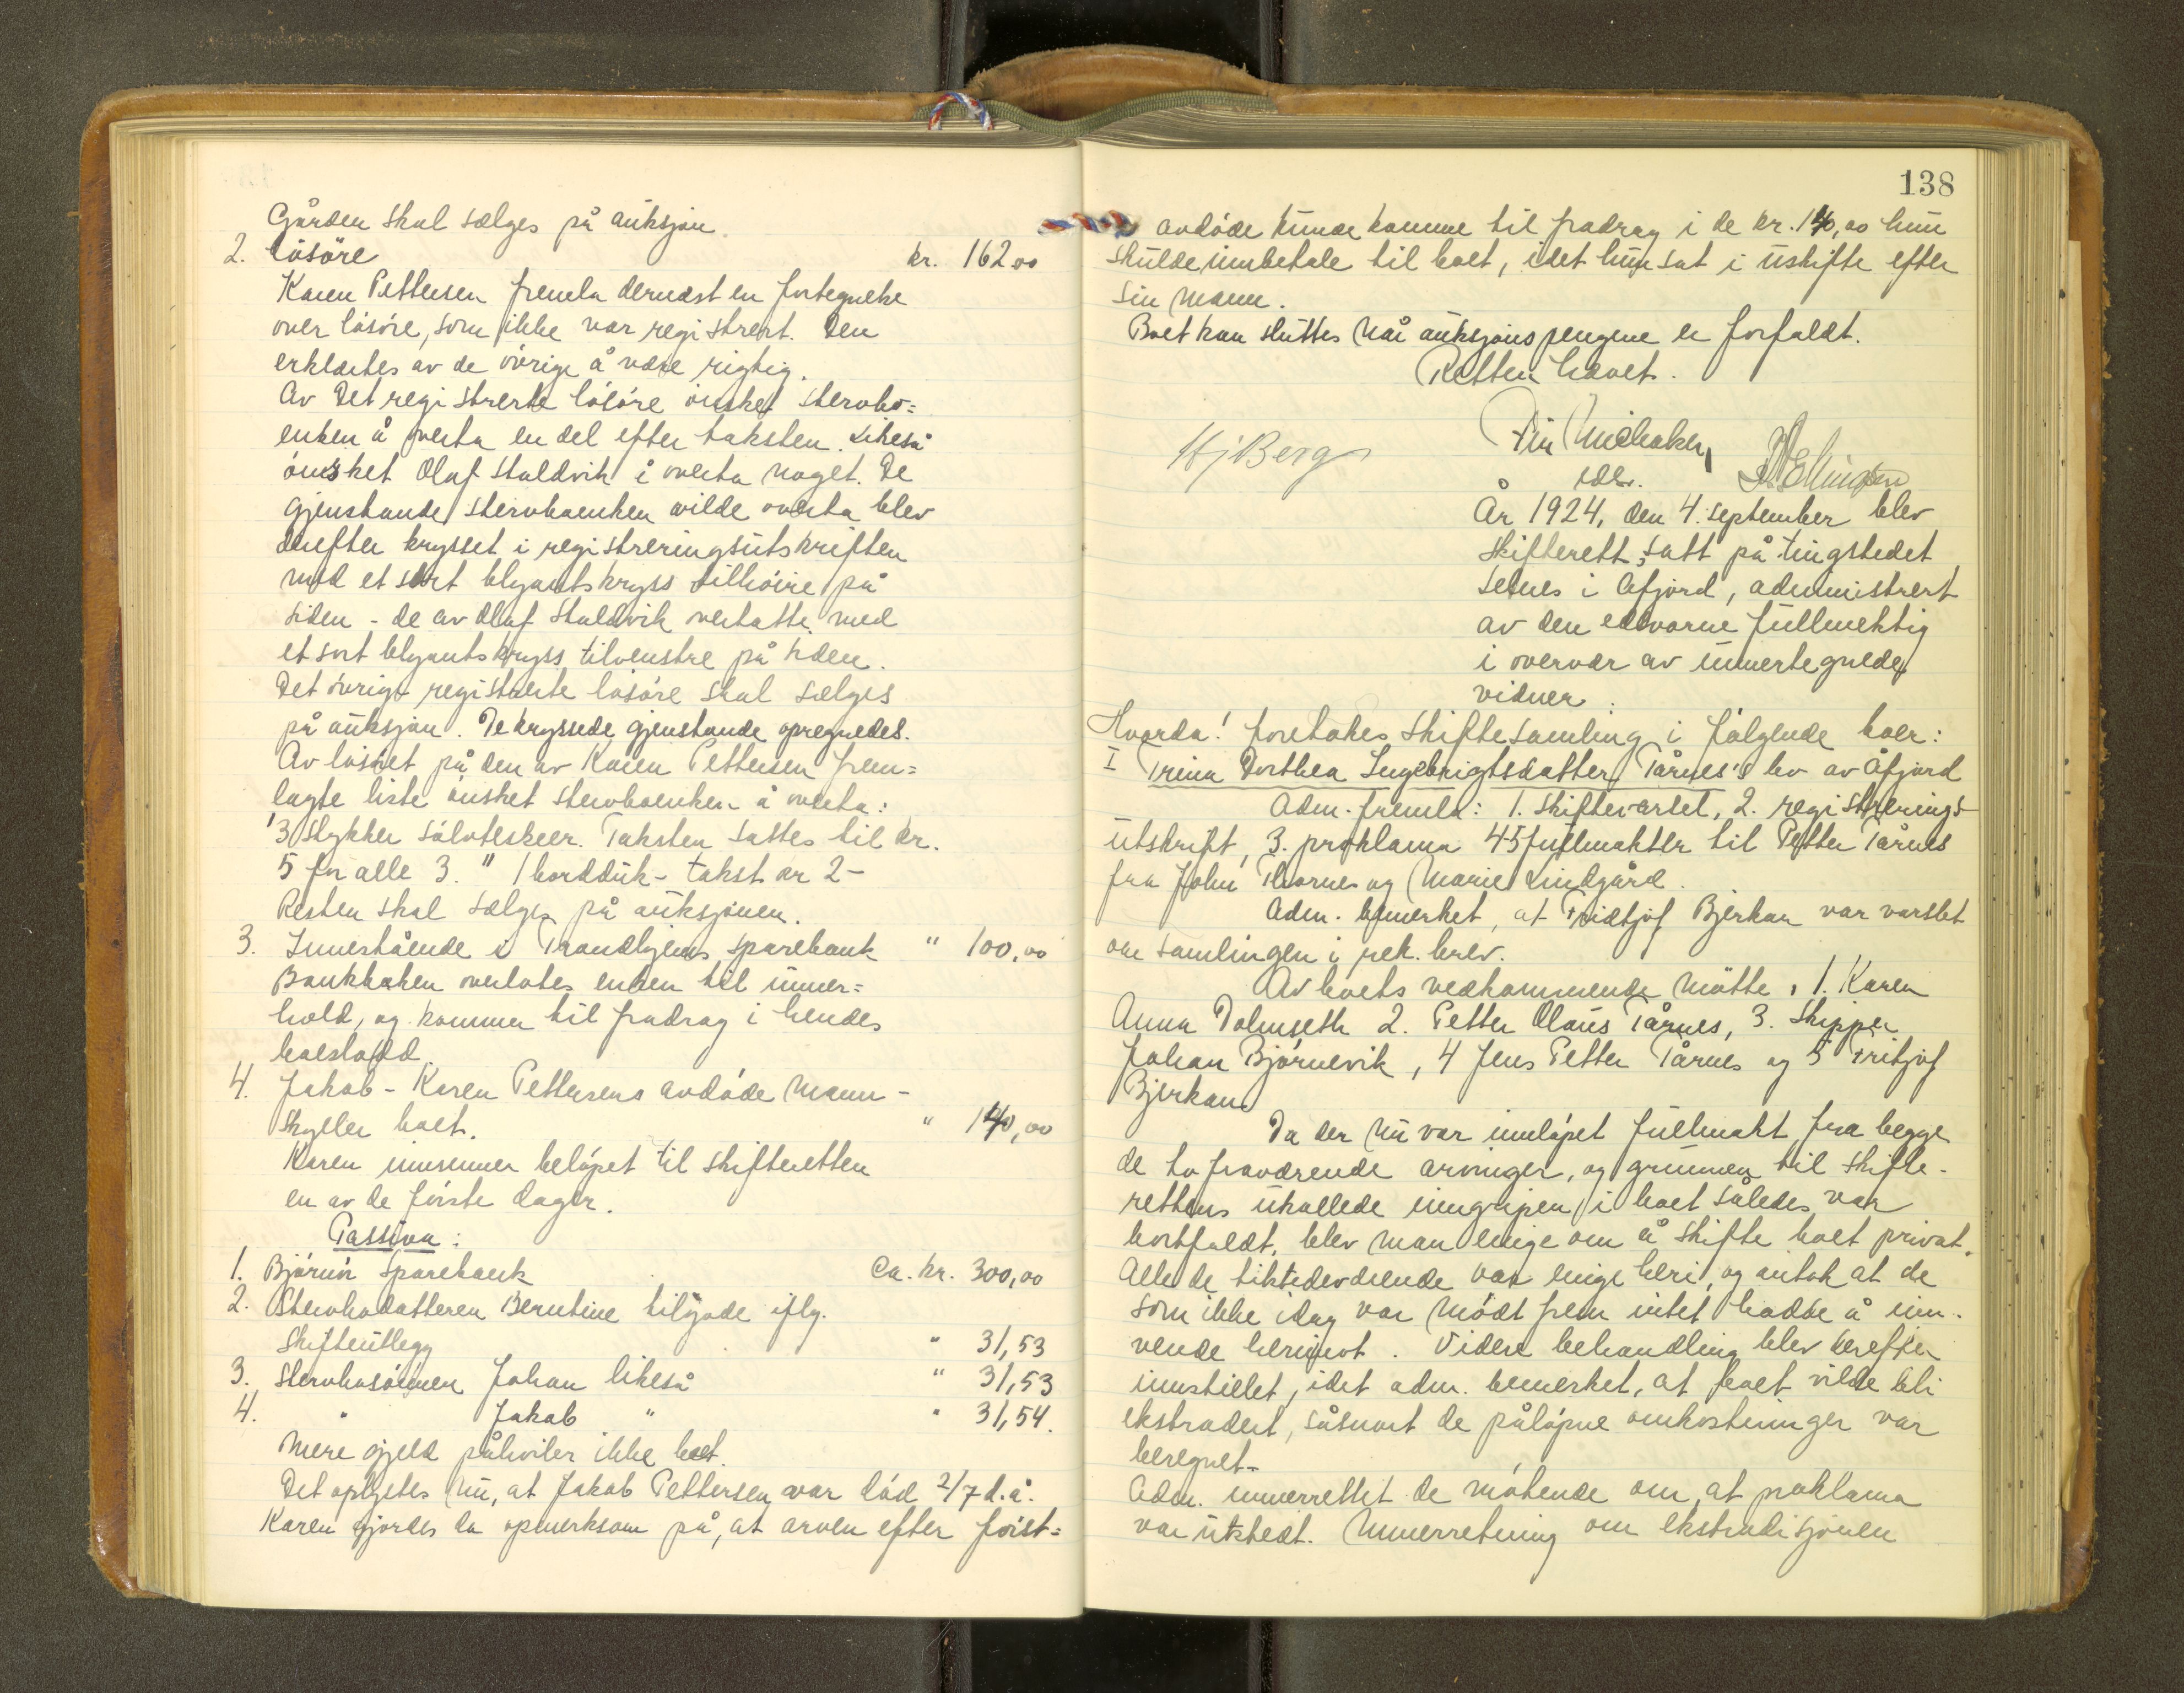 Gården skal sælges på auksjon.
2. Løsøre kr. 162 00
Karen Pettersen fremla dernæst en fortegnelse
over løsøre, som ikke var registrert. Den
erklærtes av de øvrige å være rigtig.
Av det registrerte løsøre ønsket stervbo=
enken å overta en del efter taksten. Likeså
ønsket Olaf Staldvik å overta noget. De
gjenstande stervboenken vilde overta blev
derefter krysset i registreringsutskriften
med et sort blyantskryss tilhøire på
siden - de av Olaf Staldvik overtatte med
et sort blyantskryss tilvenstre på siden.
Det øvrige registrerte løsøre skal sælges
på auksjon. De kryssede gjenstande opregnedes.
Av løsøret på den av Karen Pettersen frem=
lagte liste ønsket stervboenken å overta:
3 stykker sølvteskeer. Taksten sattes til kr.
5 for alle 3. " 1 bordduk - takst kr 2-
Resten skal sælges på auksjonen.
3. Innestående i Trondhjems sparebank " 100,00
Bankboken overlotes enken til unner=
hold, og kommer til fradrag i hendes
boeslodd.
4. Jakob - Karen Pettersens avdøde mann -
skyller boet. " 140,00
Karen innsenner beløpet til skifteretten
en av de første dager.
Passiva:
1. Bjørnør sparebank Ca. kr. 300,00
2. Stervbodatteren Berntine tilgode iflg.
skifteutlegg " 31,53
3. Stervbosønnen Johan likeså " 31,53
4. " Jakob " " 31,54.
Mere gjeld påhviler ikke boet.
Det oplystes nu, at Jakob Pettersen var død 2/7 d.å.
Karen gjordes da opmerksom på, at arven efter først=
138
avdøde kunde komme til fradrag i de kr. 140,00 hun
skulde innbetale til boet, idet hun sat i uskifte efter
sin mann.
Boet kan sluttes når auksjonspengene er forfaldt.
Retten hævet.
Hj Berg
År 1924, den 4. september blev
skifterett satt på tingstedet
Selnes i Åfjord, administrert
av den edsvorne fullmektig
i overvær av unnertegnede
vidner.
Hvorda! foretokes skiftesamling i følgende boer:
I Trina Dorthea Ingebrigtsdatter Tårnes's bo av Åfjord
Adm. fremla: 1. skiftevarslet, 2. registrerings-
utskrift, 3. proklama 4-5 fullmakter til Petter Tårnes
fra John Thornes og Marie Lindgård.
Adm. bemerket, at Fridtjof Bjerkan var varslet
om samlingen i rek. brev.
Av boets vedkommende møtte, 1. Karen
Anna Dolmseth 2. Petter Olaus Tårnes, 3. Skipper
Johan Bjørnevik, 4 Jens Petter Tårnes og 5 Fritjof
Bjerkan
Da der nu var innløpet fullmakt fra begge
de to fraværende arvinger, og grunnen til skifte-
rettens ukallede inngripen i boet således var
bortfaldt, blev man enige om å skifte boet privat.
Alle de tilstedeværende var enige heri, og antok at de
som ikke idag var mødt frem intet hadde å inn-
vende herimot. Videre behandling blev derefter
innstillet, idet adm. bemerket, at boet vilde bli
ekstradert, såsnart de påløpne omkostninger var
beregnet.
Adm. unnerrettet de møtende om, at proklama
var utstedt. Unnerretning om ekstradisjonen